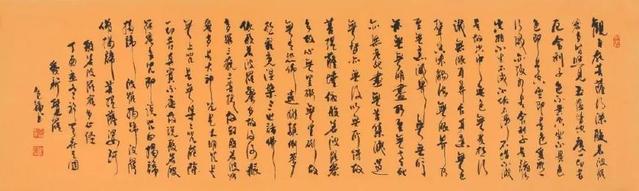 觀自在菩薩行深般若波羅
蜜多時照見五蘊皆空度一切苦
厄舍利子色不異空空不異色
色即是空空即是色受想行
識亦復如是舍利子是諸法
空相不生不滅不垢不淨不增不減
是故空中無色無受想行
識無眼耳鼻舌身意無色
聲香味觸法無眼界乃至
無意識界無無明亦
無無明盡乃至無老死亦
無老死盡無苦集滅道
無智亦無得以無所得故
菩提薩埵依般若波羅蜜
多故心無罣礙無罣礙故
無有恐怖遠離顛倒夢
想究竟涅槃三世諸佛
依般若波羅蜜多故得阿耨
多羅三藐三菩提故知般若波羅
蜜多是大神咒是大明咒是
無上咒是無等等咒能除
一切苦真實不虛故說般若波
羅蜜多咒即說咒曰揭諦
揭諦波羅揭諦波羅
僧揭諦菩提薩婆訶
般若波羅蜜多心經
丁酉